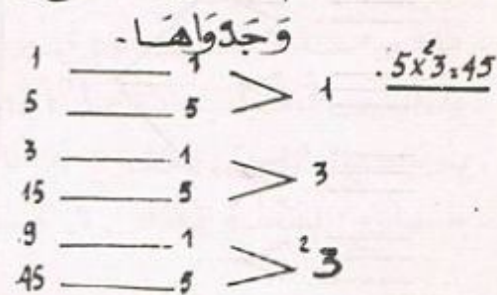 وَجَدْوَاهَا.
.5x²3=45
1 1
5 5
> 1
3 1
15 5
> 3
9 1
45 5
> ²3